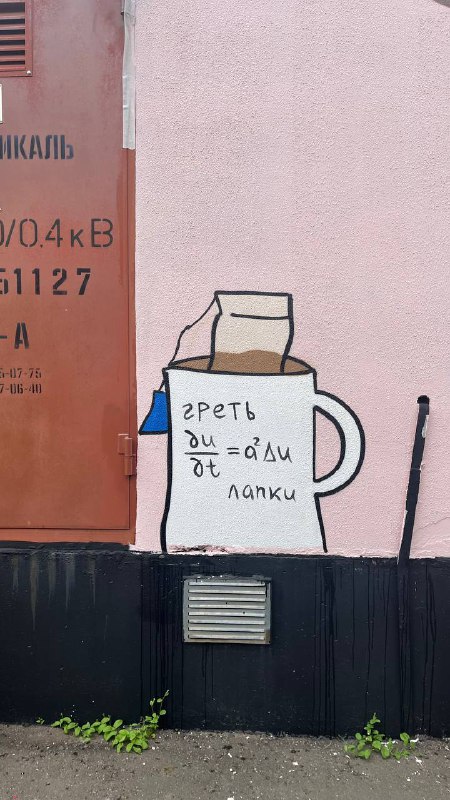 ИКАЛЬ
0/0.4кВ
51127
-А
5-07-75
7-06-40
греть
∂u/∂t = a²Δu
лапки